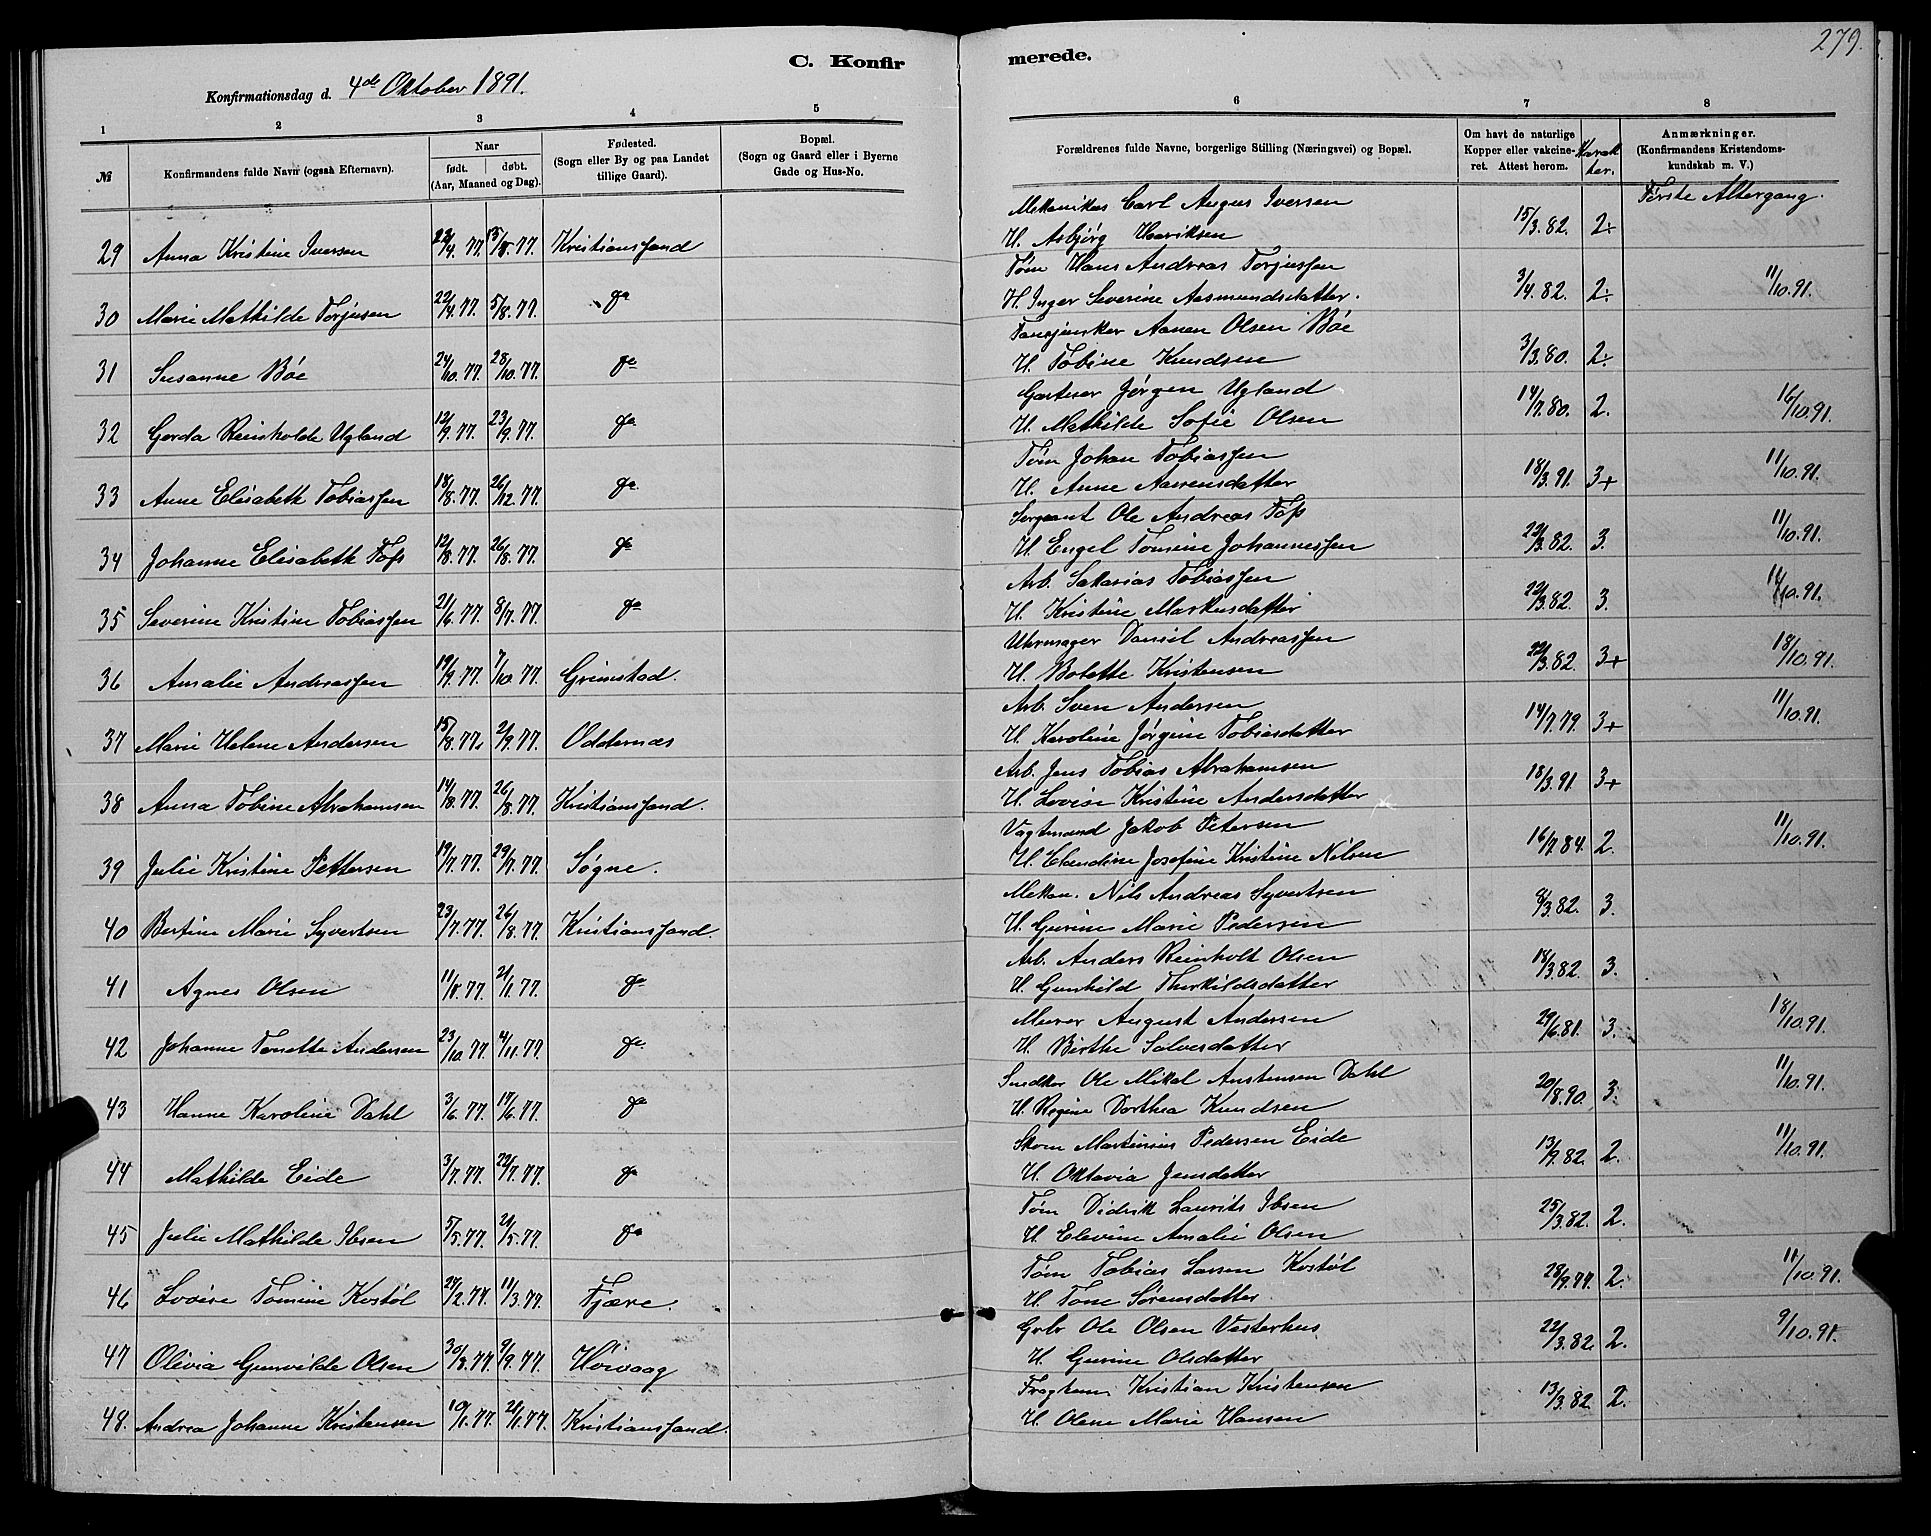 279.
C. Konfir merede.
Konfirmationsdag d. 4de Oktober 1891.
1 2 3 4 5 6 7 8
№
Konfirmandens fulde Navn (ogsaa Efternavn).
Naar
født. døbt.
(Aar, Maaned og Dag).
Fødested.
(Sogn eller By og paa Landet
tillige Gaard).
Bopæl.
(Sogn og Gaard eller i Byerne
Gade og Hus-No.
Forældrenes fulde Navne, borgerlige Stilling (Næringsvei) og Bopæl.
Om havt de naturlige
Kopper eller vakcine-
ret. Attest herom.
Karak
ter.
Anmærkninger.
(Konfirmandens Kristendoms-
kundskab m. V.)
Første Altergang.
Mekanikus Carl Augus Iversen
29 Anna Kristine Iversen 77. 77. Kristianssand H. Asbjørg Henriksen 15/3.82. 2÷
Tøm Hans Andreas Torjussen
30 Marie Mathilde Torjusen 22/4.77. 5/8.77. do H. Inger Severine Aasmundsdatter. 3/4.82. 2÷ 11/10.91.
Aanen Olsen Böe
31 Susanne Böe 24/10.77. 28/10.77. do H. Tobine Knudsen 3/3.80. 2÷
Gartner Jørgen Ugland
32 Gerda Reinholde Ugland 12/9.77. 23/9.77. do H. Mathilde Sofie Olsen 14/7.80. 2. 16/10.91.
Tøm Johan Tobiassen
33 Anne Elisabeth Tobiassen 18/8.77. 26/12.77. do H. Anne Aanensdatter 18/3.91. 3+ 11/10.91.
Sergeant Ole Andreas Foss
34 Johanne Elisabeth Foss 12/8.77. 26/8.77. do H. Engel Tomine Johannessen 22/3.82. 3. 11/10.91.
Arb. Sakarias Tobiassen
35 Severine Kristine Tobiassen 21/6.77. 8/7.77. do H. Kristine Markusdatter 22/3.82. 3. 11/10.91.
Uhrmager Daniel Andreassen
36 Amalie Andreassen 19/9.77. 7/10.77. Grimstad. H. Bolette Kristensen 22/3.82. 3+ 18/10.91.
Arb. Sven Andersen
37 Marie Helene Andersen 15/8.77. 2/9.77. Oddernæs H. Karoline Jörgine Tobiasdatter 14/7.79. 3+ 11/10.91.
Arb. Jens Tobias Abrahamsen
38 Anna Tobine Abrahamsen 14/8.77. 26/8.77. Kristianssand. H. Lovise Kristine Andersdatter 18/3.91. 3+
Vagtmand Jakob Petersen
39 Julie Kristine Pettersen 19/7.77. 29/7.77. Søgne. H. Claudine Josefine Kristine Nilsen 16/7.84. 2. 11/10.91.
Mekan. Nils Andreas Syvertsen
40 Bertine Marie Syvertsen 23/7.77. 26/8.77. Kristianssand. H. Gurine Marie Pedersen 8/3.82. 3.
Arb. Anders Reinholt Olsen
41 Agnes Olsen 77. 77. do H. Gunhild Therkildsdatter 18/3.82. 3.
Murer August Andersen
42 Johanne Tonette Andersen 23/10.77. 4/11.77. do H. Birthe Salvesdatter 29/6.81. 3. 18/10.91.
Snedker Ole Mikal Austensen Dahl
43 Hanne Karoline Dahl 3/6.77. 17/6.77. do H. Regine Dorthea Knudsen 20/8.90. 3. 11/10.91.
Skom Martinius Pedersen Eide
44 Mathilde Eide 3/7.77. 22/7.77. do H. Oktavia Jensdatter 13/9.82. 2. 11/10.91.
Tøm Didrik Laurits Ibsen
45 Julie Mathilde Ibsen 5/5.77. 21/5.77. do H. Elevine Amalie Olsen 25/3.82. 2.
Tøm Tobias Larsen Kostöl
46 Lovise Tomine Kostöl 27/2.77. 11/3.77. Fjære. H. Tone Sørensdatter 28/9.77. 2. 11/10.91.
Grbr Ole Olsen Vesterhus
47 Olivia Gunvilde Olsen 30/3.77. 9/9.77. Høivaag H. Gurine Olsdatter 22/3.82. 2. 9/10.91.
Kristian Kristensen
48. Andrea Johanne Kristensen 19/1.77. 21/1.77. Kristianssand. H. Olene Marie Hansen 13/3.82. 2.